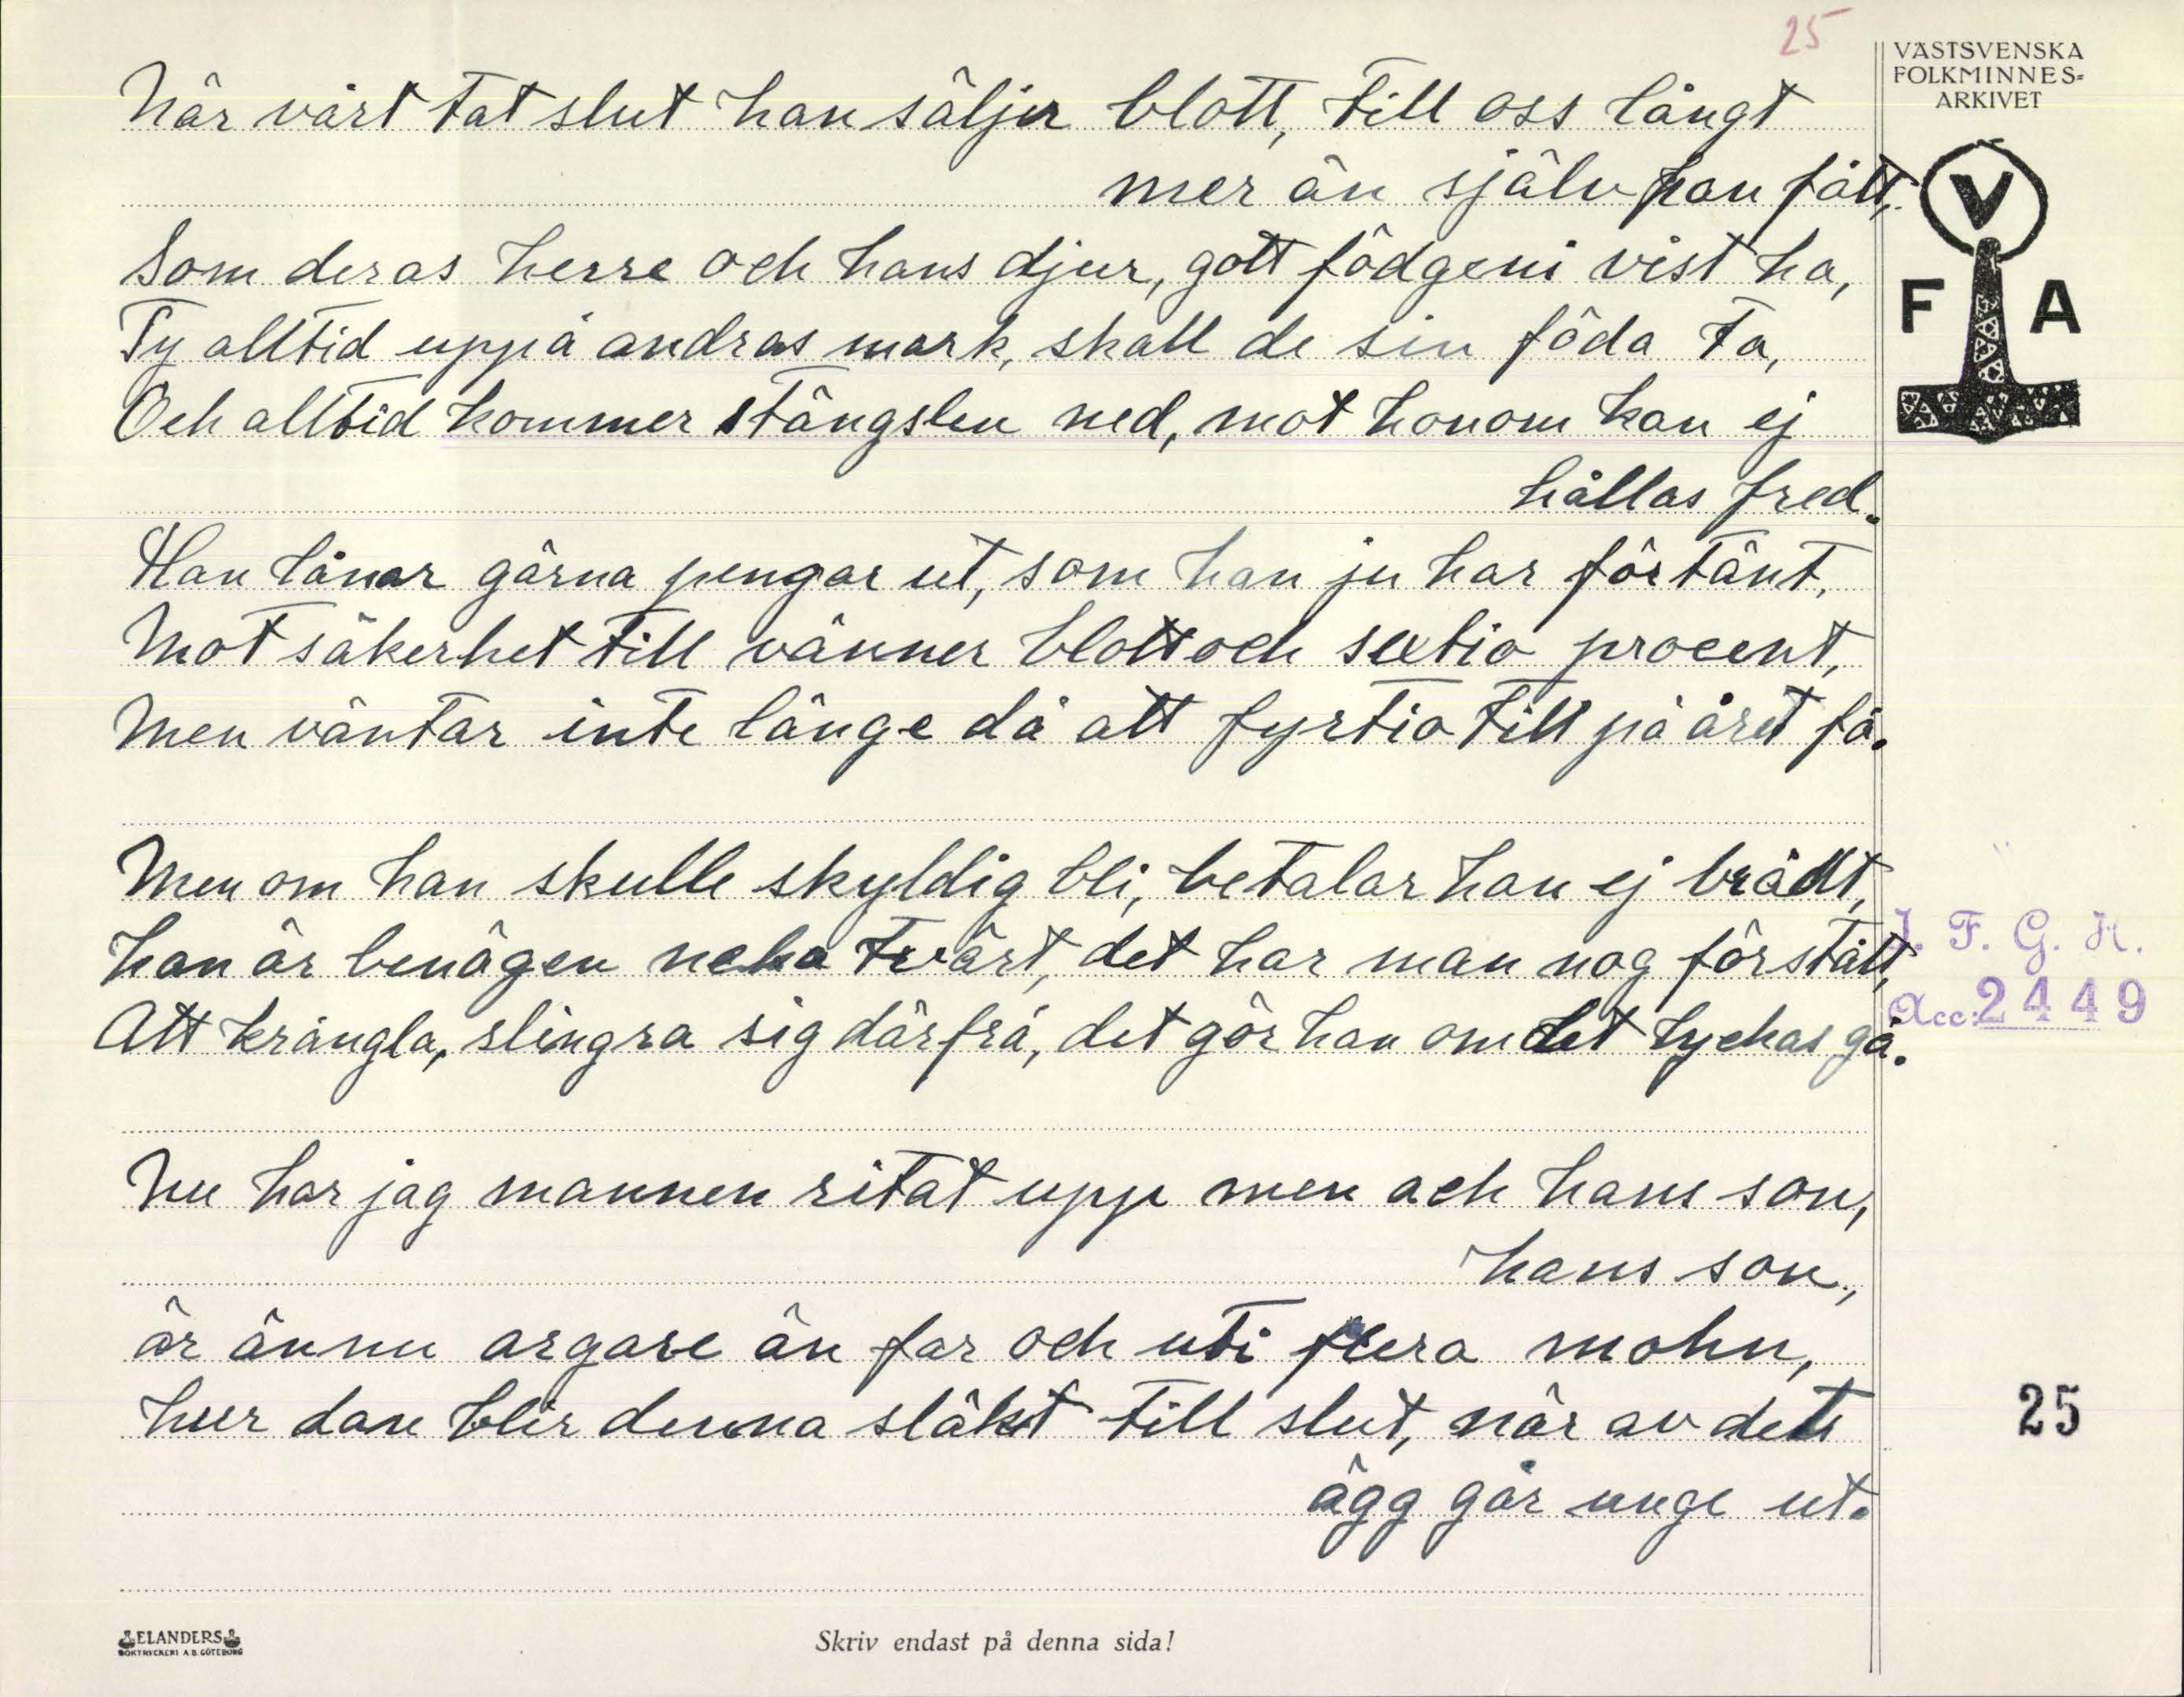 25
VÄSTSVENSKA
FOLKMINNES-
ARKIVET
När vårt tat slut han säljer blott, till oss långt
mer än själv han fått,
V
F A
Som deras herre och hans djur, gott födgeni vist ha,
Ty alltid uppå andras mark, skall de sin föda ta,
Och alltid kommer stängslen ned, mot honom kan ej
hållas fred.
Han lånar gärna pengar ut, som han ju har förtänt,
Mot säkerhet till vänner blott och sextio procent,
Men väntar inte länge då att fyrtio till på året få.
Men om han skulle skyldig bli, betalar han ej brådt,
han är benägen neka tvärt, det har man nog förstått,
Att krångla, slingra sig därfrå, det gör han om det lyckas gå.
I. F. G. H.
Acc: 2449
Nu har jag mannen ritat upp men ack hans son,
hans son,
är ännu argare än far och uti flera mohn,
hur dan blir denna släkt till slut, när av dett
ägg går unge ut.
25
ELANDERS
BOKTRYCKERI A.B. GÖTEBORG
Skriv endast på denna sida!